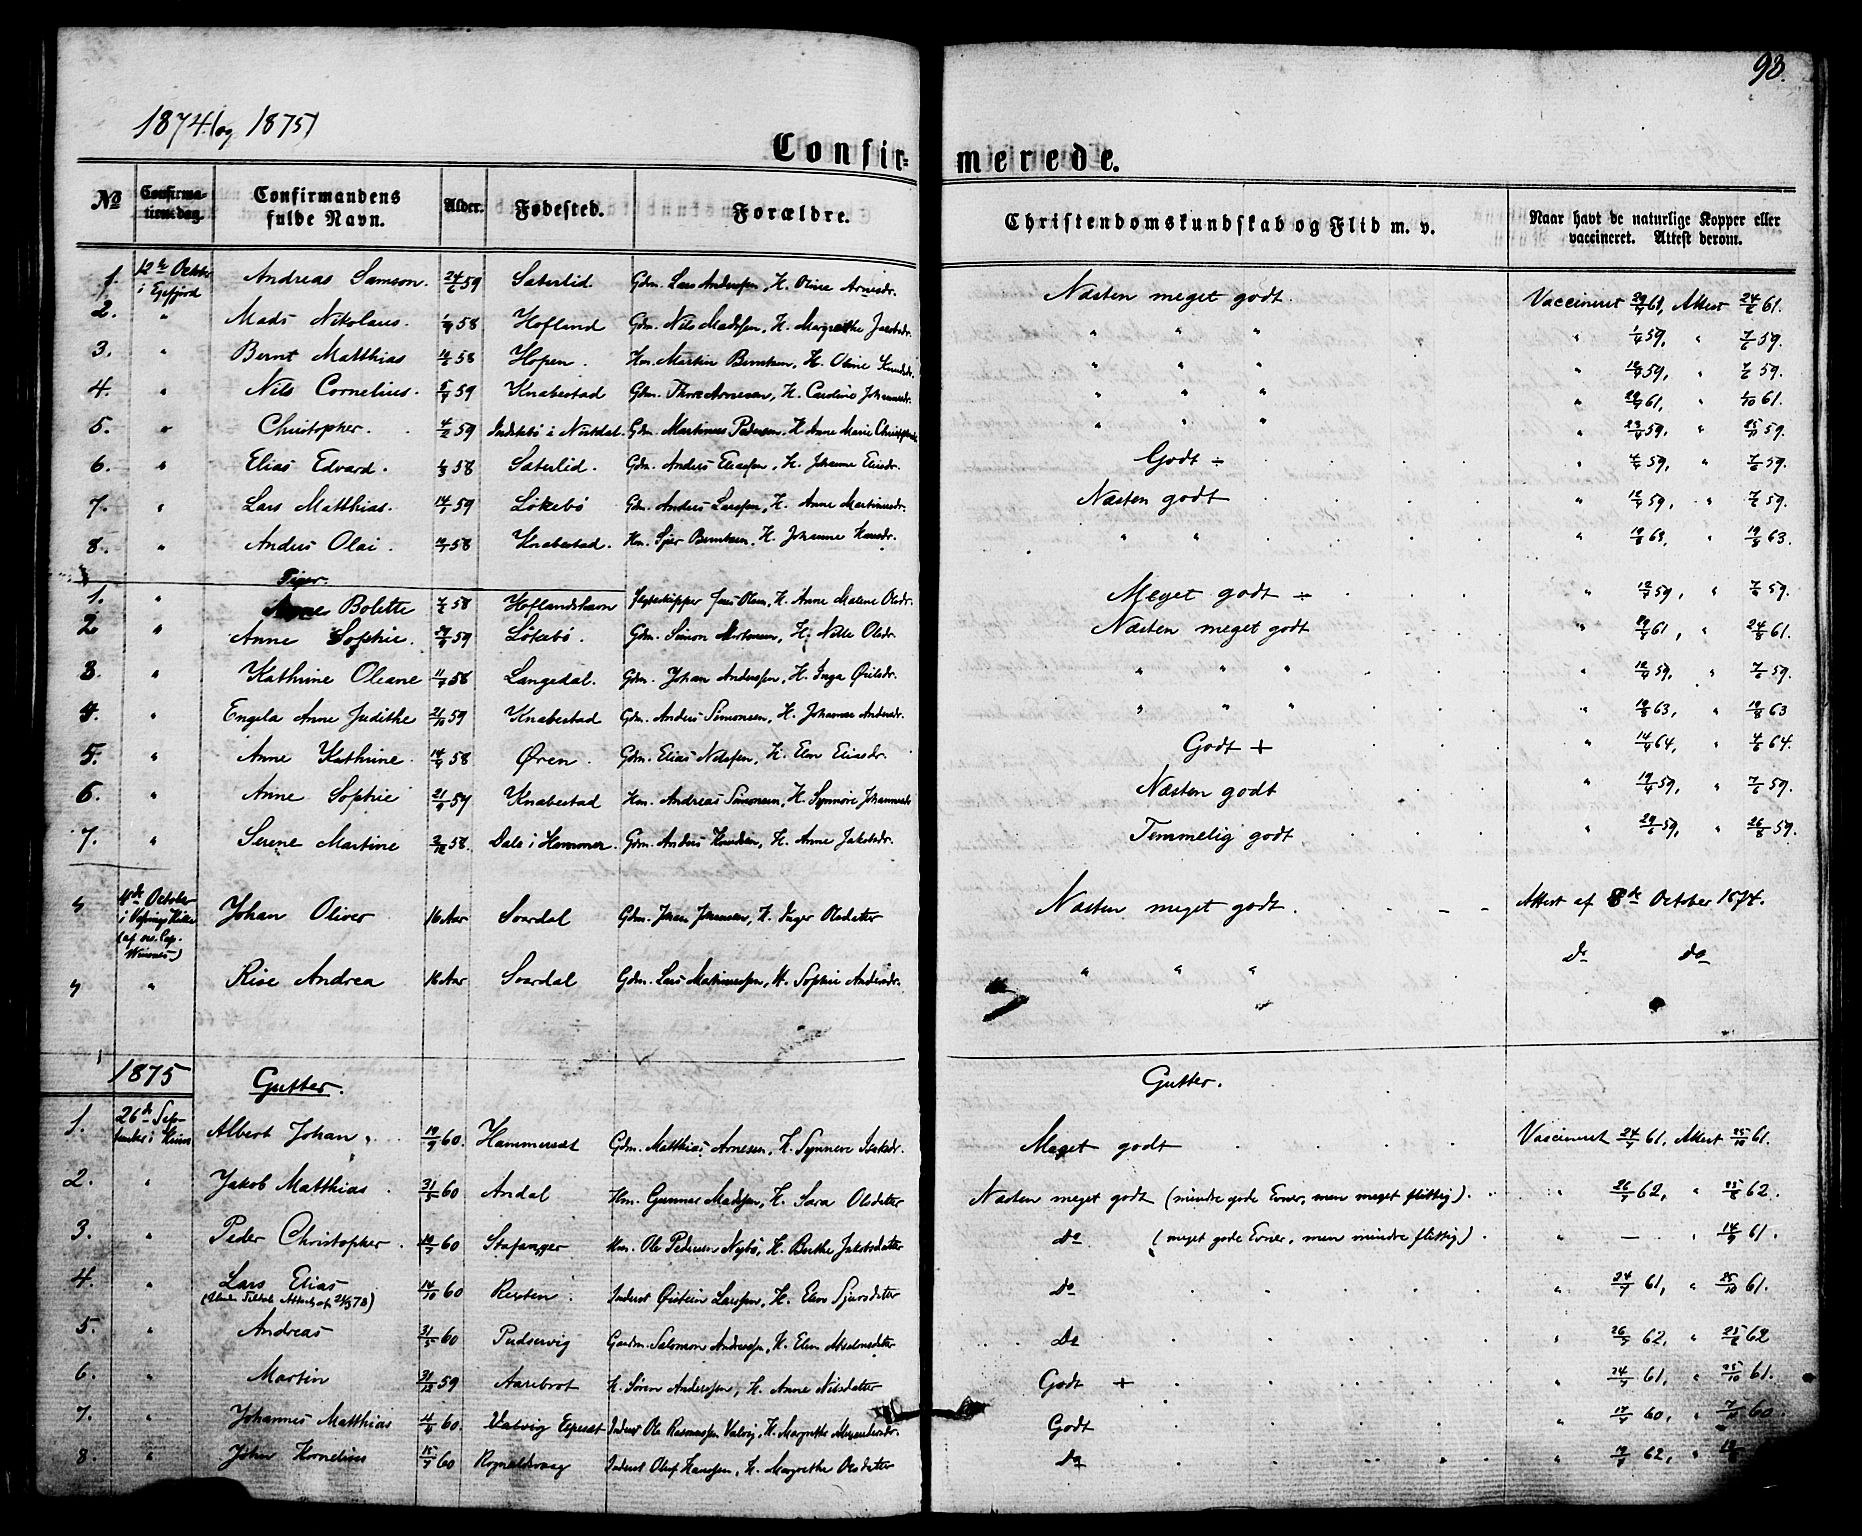 98.
1874 (og 1875)
Confir- merede.
№ Confirma-tionsdag. Confirmandens fulde Navn. Alder. Fødested. Forældre. Christendomskundskab og Flid m. v. Naar havt de naturlige Kopper eller vaccineret. Attest derom.
1. 12te Octbr i Andreas Samson. 24/6 59 Sæterlid Gdm. Lars Anderssen, H. Oline Arnesdr. Næsten meget godt. Vaccineret 29/7 61, Attest 24/8 61.
2. " Mads Nikolaus. 58 Hofland Gdm. Nils Madssen, H. Margrethe Jakobsdr. " " " " 59, " 7/6 59.
3. " Bernt Matthias 58 Hopen. Hm. Martin Berntsen, H. Oline Knudsdr. " " " " 59, " 7/6 59.
4. " Nils Cornelius. 5/4 59 Knabestad Gdm. Thore Arnesen, H. Caroline Johannesdr. " " " " 61, " 61.
5. " Christopher. 4/2 59 i Gdm. Martinus Pedersen, H. Anne Marie " " " " 59, " 59.
6. " Elias Edvard. 58 Sæterlid. Gdm. Anders Eliassen, H. Johanne Eliasdr. Godt ÷ " 59, " 7/6 59.
7. " Lars Matthias. 14/1 59 Løkebø Gdm. Anders Larssen, H. Anne Martinusdr. Næsten godt " 59, " 7/6 59.
8. " Anders Olai. 58 Knabestad. Hm. Sjur Berntsen, H. Johanne Hansdr. " " " 19/8 63, " 19/8 63.
Piger.
1. " Anne Bolette 7/2 58 Hoflandshavn Jens Olsen, H. Anne Malene Olsdr. Meget godt ÷ " 59, " 7/6 59.
2 " Anne Sophie. 59 Løkebø. Gdm. Simon Mortensen, H. Nille Olsdr. Næsten meget godt " 61, " 24/8 61.
3. " Kathrine Oleane 58 Langedal. Gdm. Johan Anderssen, H. Inga " " " " 59, " 7/6 59.
4. " Engela Anne Judithe 21/10 59 Knabestad Gdm. Anders Simonsen, H. Johanne Andersdr. " " " " 19/8 63, " 19/8 63
5. " Anne Kathrine. 14/9 58 Øren. Gdm. Elias Nilssen, H. Elen Eliasdr. Godt + " 14/4 64, " 4/6 64.
6. " Anne Sophie 21/9 59 Knabestad Hm. Andreas Simonsen, H. Synnøve Johannesdr Næsten godt " 59, " 7/6 59.
7. " Serene Martine 58. Dale i Hammer. Gdm. Anders Knudsen, H. Anne Jakobsdr. Temmelig godt " 59, " 26/8 59.
" October i Kirke (af Cap. ) Johan Oliver 16 Aar Svardal Gdm. Jens Jensen, H. Inger Olsdatter Næsten meget godt. Attest af 8de October 1874.
" " Rise Andrea 16 Aar Svardal Gdm. Lars Martinussen, H. Sophie Andersdr. " " " Do Do
1875 Gutter. Gutter.
1. 26de September i Kinn Albert Johan. 19/9 60. Hammerset Gdm. Matthias Arnesen, H. Synneve Isaksdr. Meget godt Vaccineret 24/7 61, Attest 25/10 61.
2. " Jakob Matthias 31/5 60 Andal Hm. Gunnar Madssen, H. Sara Olsdatter Næsten meget godt (mindre gode Evner, men meget flittig). " 26/7 62, " 25/8 62.
3. " Peder Christopher. 60 Stafanger Hm. Ole Pedersen Nybø, H. Berthe Jakobsdatter Do (meget gode Evner, men mindre flittig). " — " 14/9 61.
4. " Lars Elias 14/10 60 Resten. Inderst Øistein Larssen, H. Elen Sjursdatter Do " 24/7 61, " 25/10 61.
5. " Andreas 31/5 60 Pudservig Gaardm. Salomon Andreassen, H. Elen Absalonsdatter Do " 26/7 62, " 25/8 62
6. " Martin 31/12 59 Aarebrot H. Søren Anderssen, H. Anne Nilsdatter Godt + " 24/7 61, " 25/10 61.
7. " Johannes Matthias 60. Valvig Inderst Ole Rasmussen Valvig, H. Margrethe Alexandersdr. Godt " 60, " 60.
8. " Johan Kornelius 15/7 60 Rognaldsvaag Inderst Oluf Hanssen, H. Margrethe Olsdatter Do " 62, "